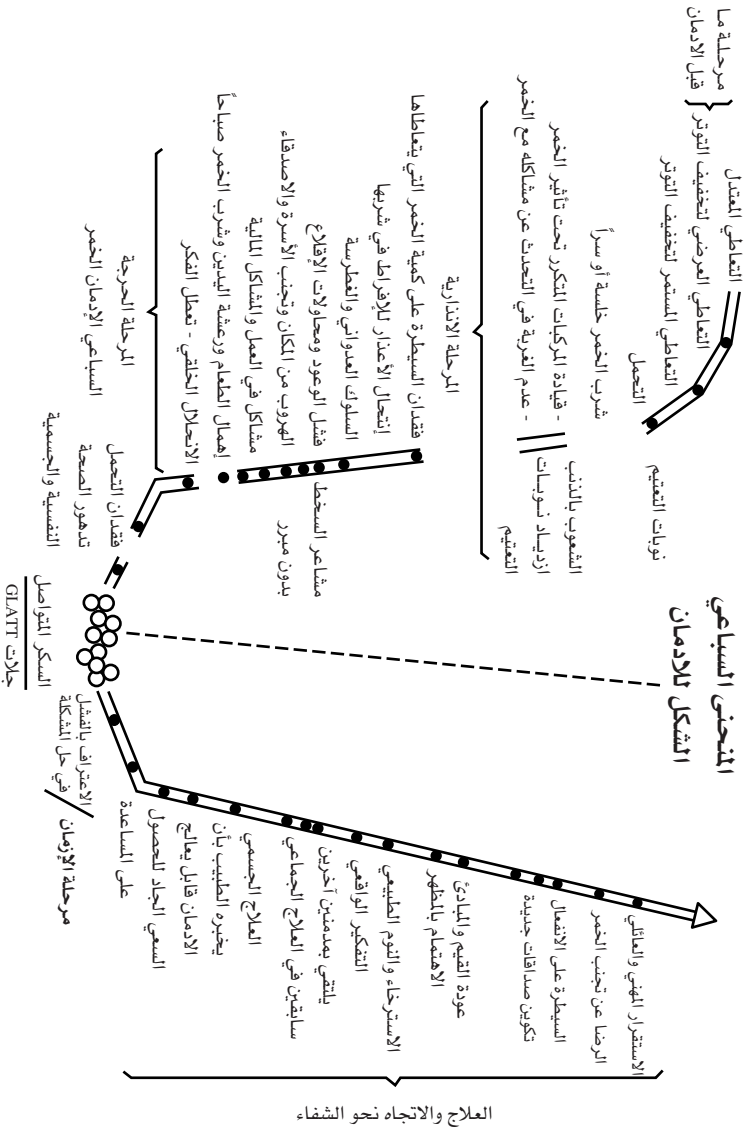 المنحنى السباعي
الشكل للادمان
مرحلة ما
قبل الادمان
التعاطي المعتدل
التعاطي العرضي لتخفيف التوتر
التعاطي المستمر لتخفيف التوتر
التحمل
نوبات التعتيم
شرب الخمر خلسة أو سراً
- قيادة المركبات المتكرر تحت تأثير الخمر
- عدم الغربة في التحدث عن مشاكله مع الخمر
الشعوب بالذنب
ازديـاد نـوبـات
التعتيم
المرحلة الانذارية
فقدان السيطرة على كمية الخمر التي يتعاطاها
إنتحال الأعذار للإفراط في شربها
السلوك العدواني والغطرسة
فشل الوعود ومحاولات الإقلاع
الهروب من المكان وتجنب الأسرة والاصدقاء
مشاكل في العمل والمشاكل المالية
إهمال الطعام ورعشة اليدين وشرب الخمر صباحاً
الانحلال الخلقي - تعطل الفكر
مشاعر السخط
بدون مبرر
المرحلة الحرجة
السباعي الإدمان الخمر
فقدان التحمل
تدهور الصحة
النفسية والجسمية
السكر المتواصل
جلات GLATT
الاعتراف بالفشل
في حل المشكلة
مرحلة الإزمان
السعي الجاد للحصول
على المساعدة
يخبره الطبيب بأن
الادمان قابل يعالج
العلاج الجسمي
يلتقي بمدمنين آخرين
سابقين في العلاج الجماعي
التفكير الواقعي
الاسترخاء والنوم الطبيعي
الاهتمام بالمظهر
عودة القيم والمبادئ
تكوين صداقات جديدة
السيطرة على الانفعال
الرضا عن تجنب الخمر
الاستقرار المهني والعائلي
العلاج والاتجاه نحو الشفاء